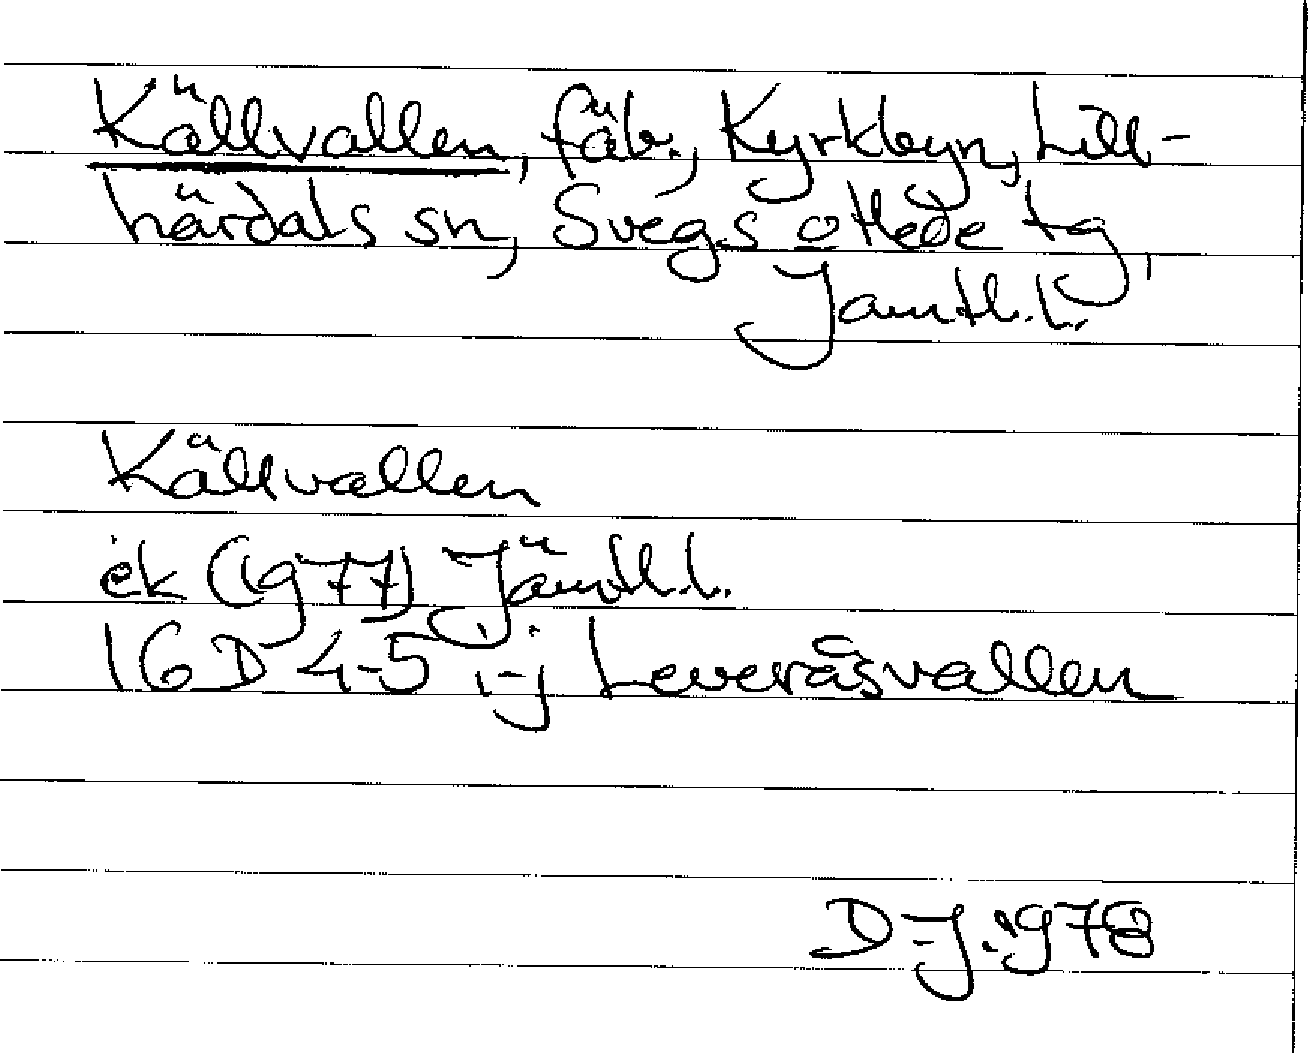 Källvallen, fäb., Kyrkbyn, Lill-
härdals sn, Svegs o Hede tg,
Jämtl. l.
Källvallen
ek (1977) Jämtl. l.
16D 4-5 i-j Leveråsvallen
D-J. 1978